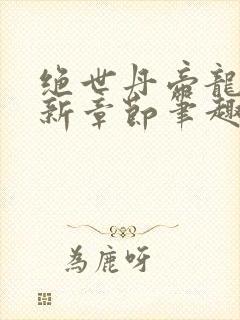 绝世丹帝龍
新章節筆趣
為鹿呀